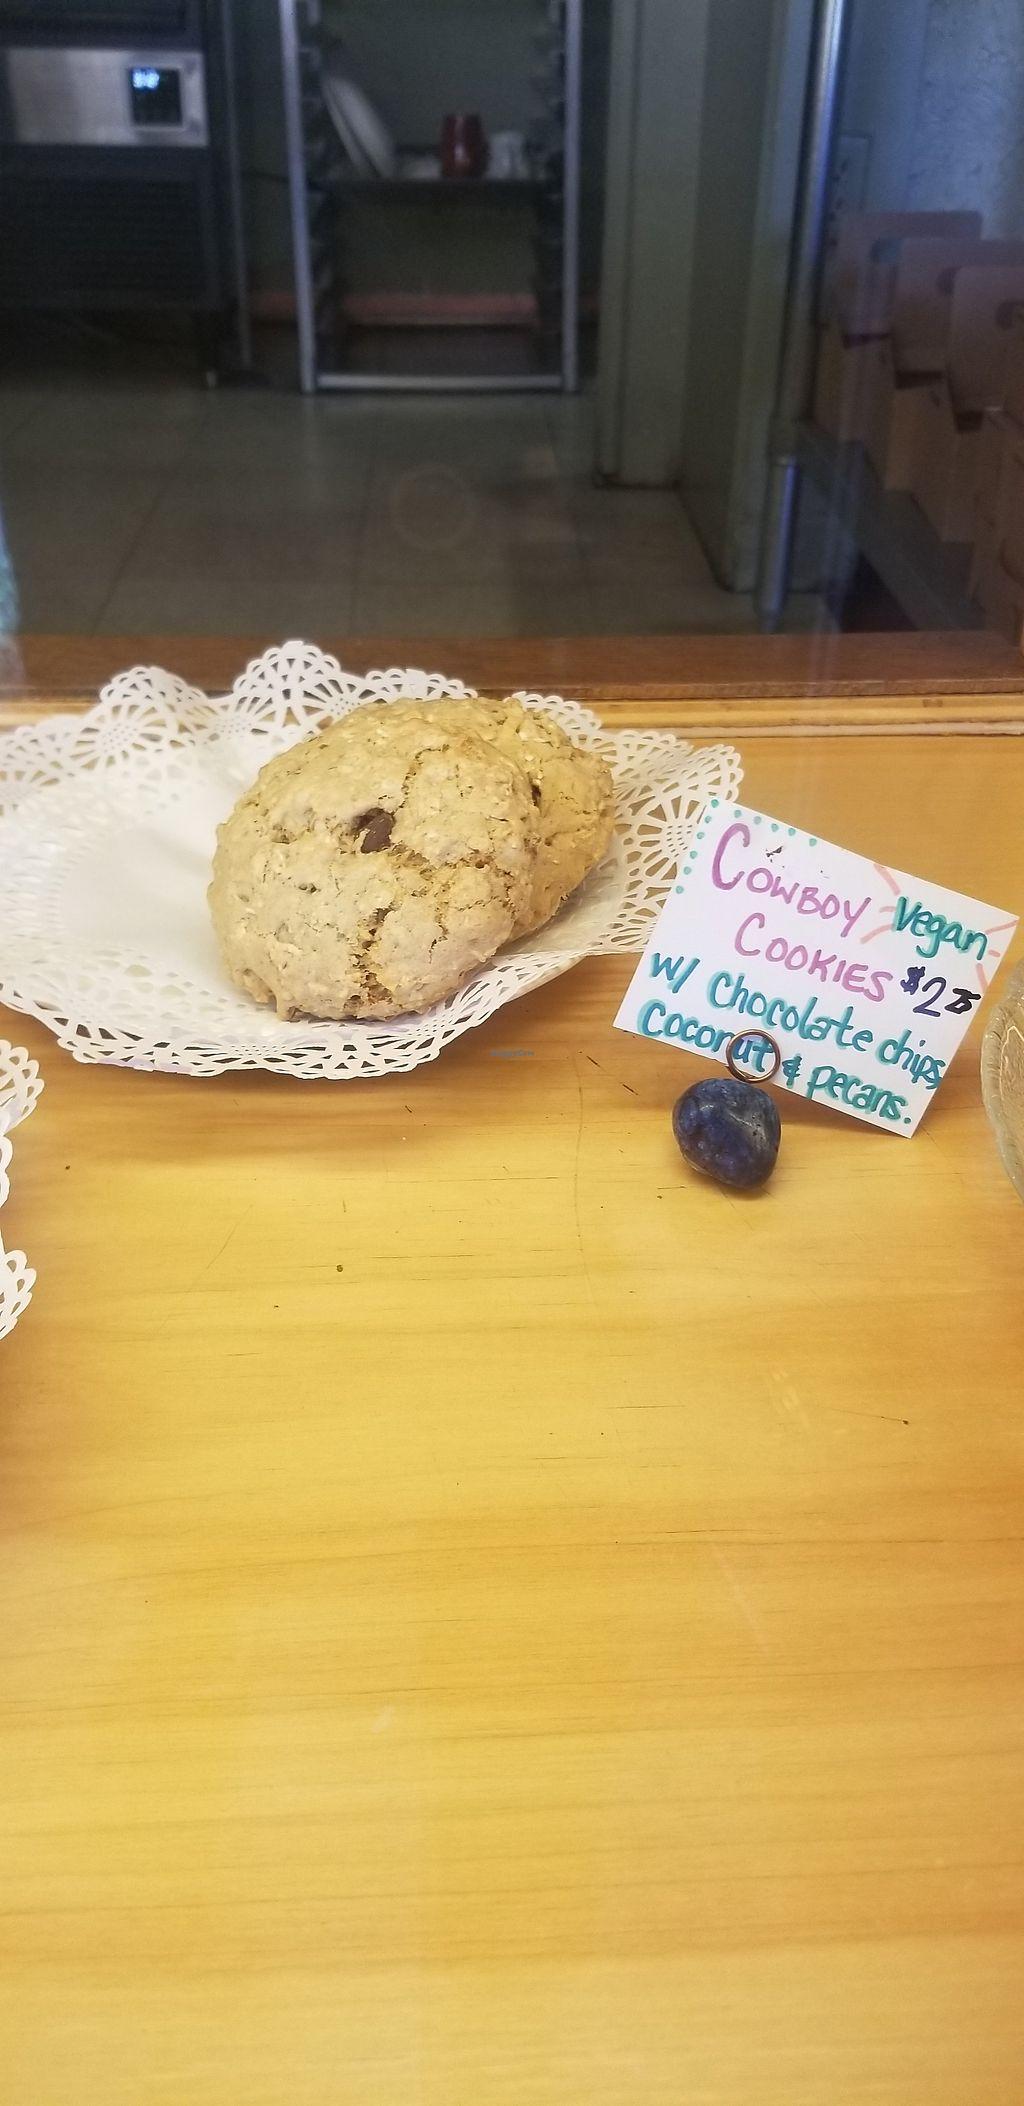 Cowboy Vegan
Cookies $2 75
w/ chocolate chips,
coconut & pecans.